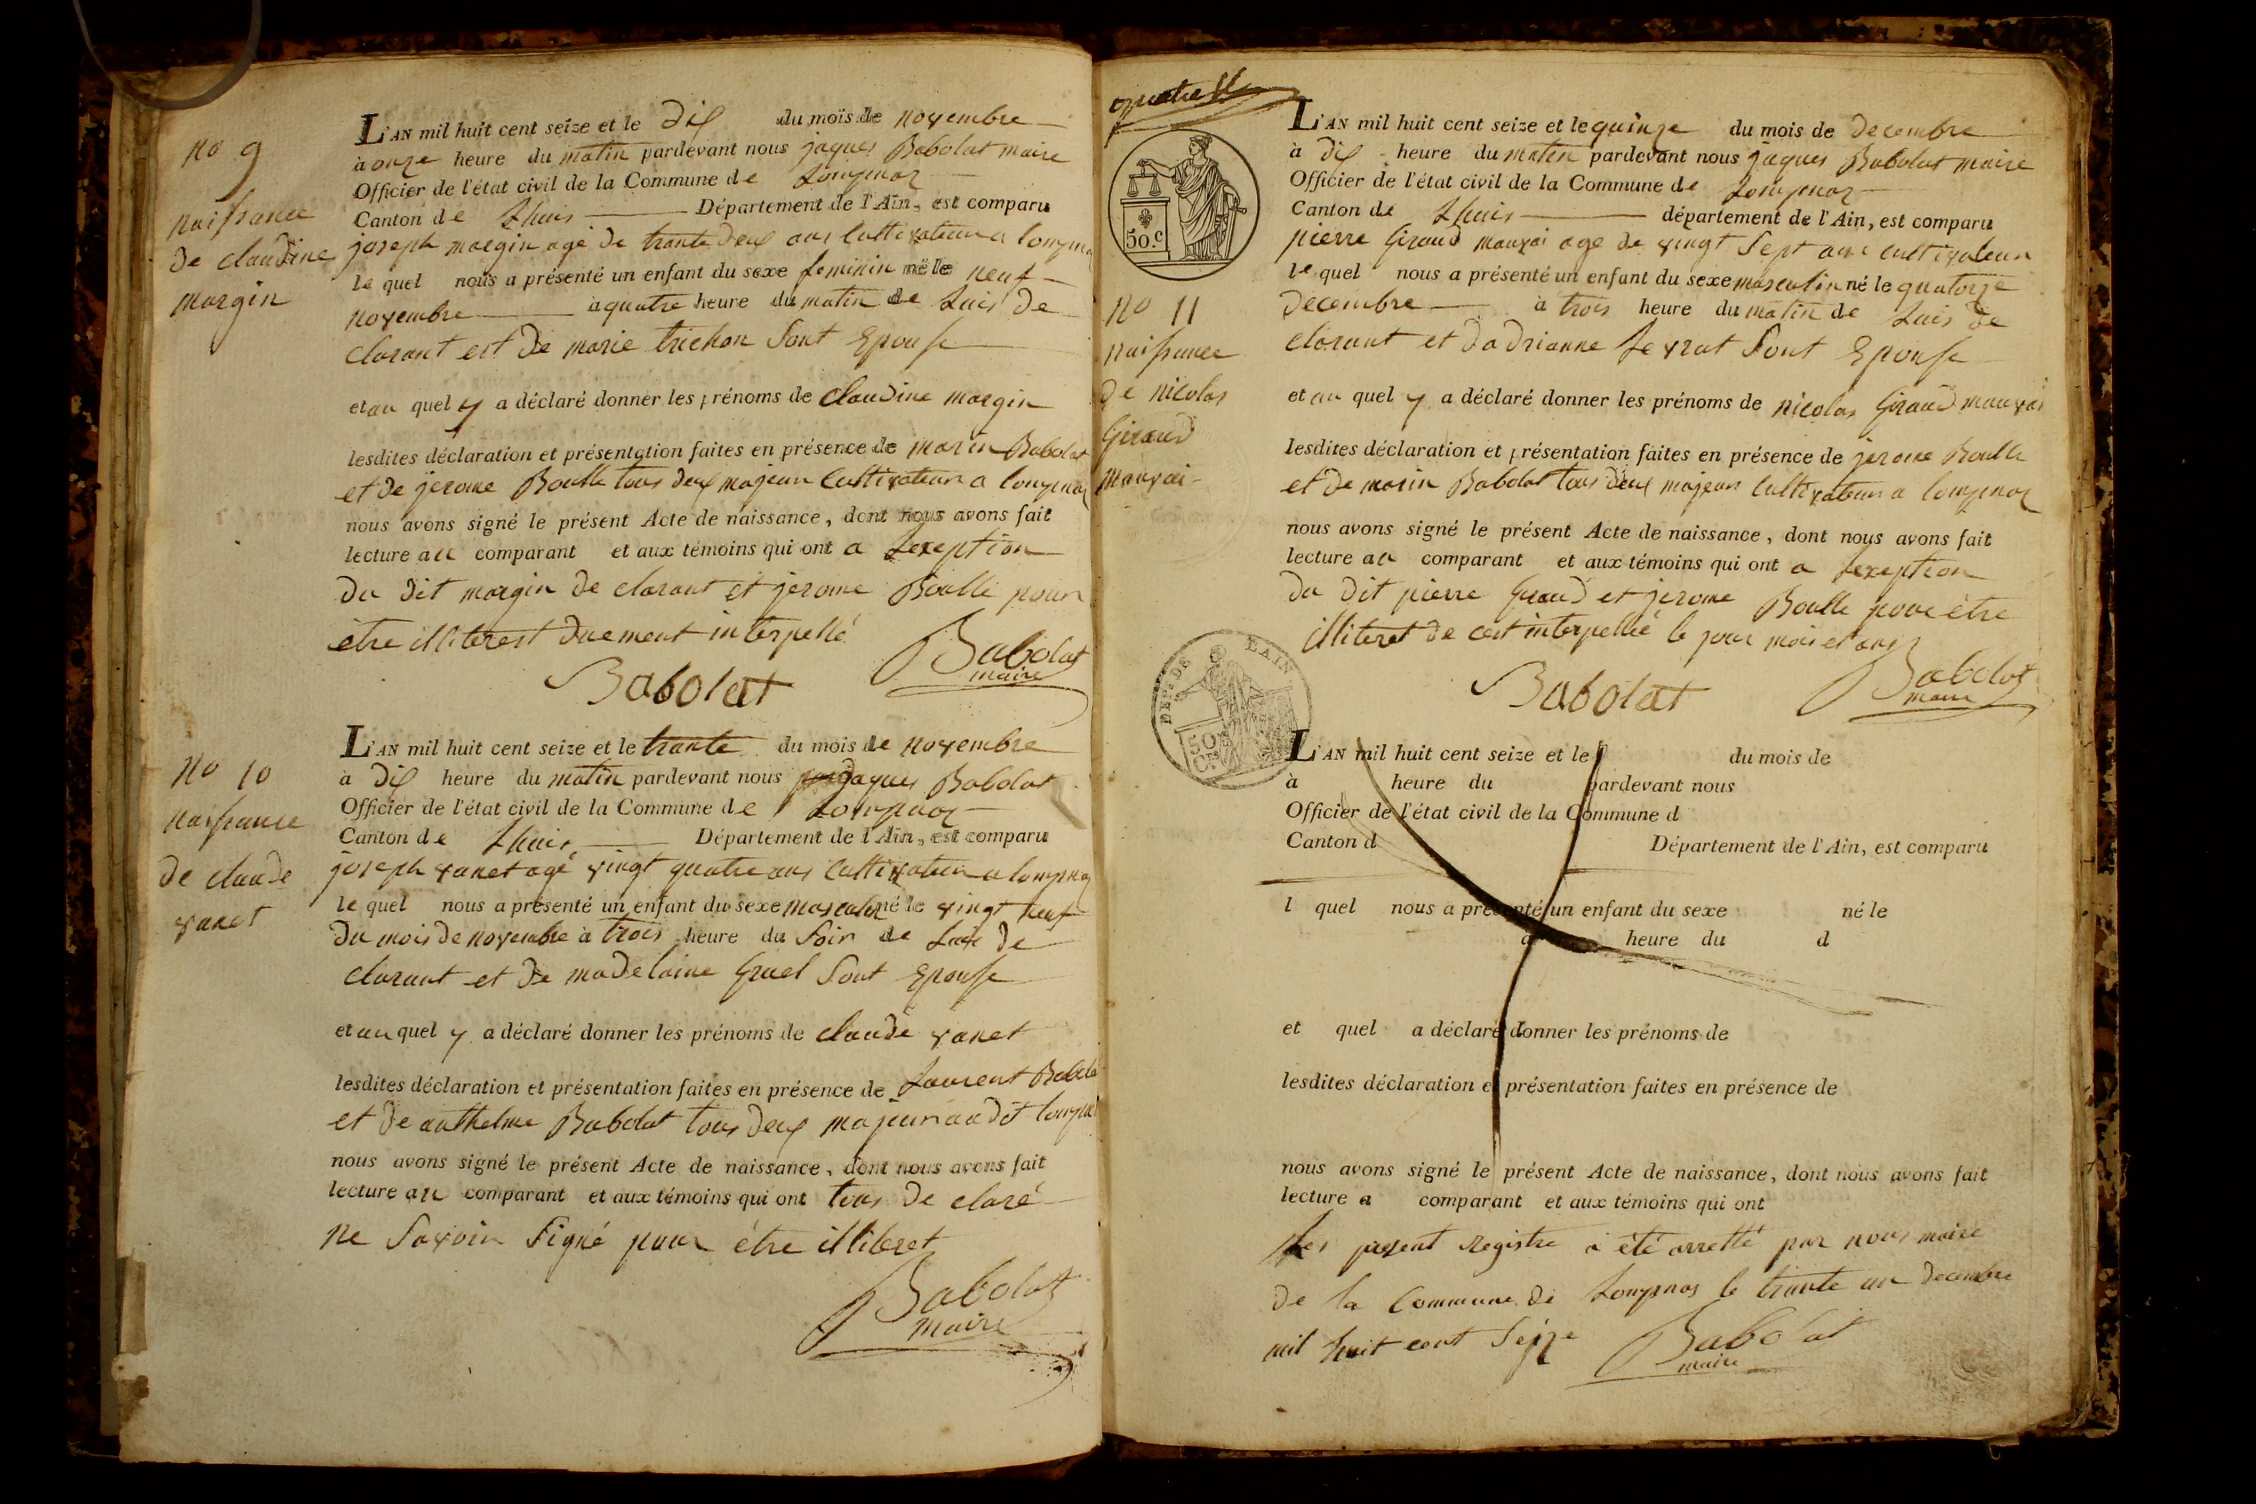 no 9
naissance
de claudine
margin
L'AN mil huit cent seize et le dix du mois de novembre
à onze heure du matin pardevant nous jaques Babolat maire
Officier de l'état civil de la Commune de Lompnaz
Canton de Lhuis Département de l'Ain, est comparu
joseph margin agé de trante deux ans Cultivateur a lompnaz
le quel nous a présenté un enfant du sexe feminin né le neuf
novembre à quatre heure du matin de Luis de
clarant est de marie trichon Sont Epouse
et au quel y a déclaré donner les prénoms de Claudine margin
lesdites déclaration et présentation faites en présence de marin Babolat
et de jerome Boulle tous deux majeur Cultivateur a lompnaz
nous avons signé le présent Acte de naissance, dont nous avons fait
lecture au comparant et aux témoins qui ont a Lexeption
du dit margin de clarant et jerome Boulle pour
être illiterest duement interpellé
Babolat
Babolat
maire
no 10
naissance
de claude
vanet
L'AN mil huit cent seize et le trante du mois de novembre
à dix heure du matin pardevant nous jaques Babolat
Officier de l'état civil de la Commune de Lompnaz
Canton de Lhuis Département de l'Ain, est comparu
joseph vanet agé vingt quatre ans Cultivateur a lompnaz
le quel nous a présenté un enfant du sexe masculin né le vingt neuf
du mois de novembre à trois heure du Soir de Luis de
clarant et de madelaine Gruel Sont Epouse
et au quel y a déclaré donner les prénoms de Claude vanet
lesdites déclaration et présentation faites en présence de Laurent Babolat
et de anthelme Babolat tous deux majeur au dit lompnaz
nous avons signé le présent Acte de naissance, dont nous avons fait
lecture au comparant et aux témoins qui ont tous de claré
ne Savoir Signé pour être illiteret
Babolat
maire
quatre
50.c
no 11
naissance
de nicolas
Giraud
mauvai
L'AN mil huit cent seize et le quinze du mois de decembre
à dix heure du matin pardevant nous jaques Babolat maire
Officier de l'état civil de la Commune de Lompnaz
Canton de Lhuis département de l'Ain, est comparu
pierre Giraud mauvai age de vingt Sept ans cultivateur
le quel nous a présenté un enfant du sexe masculin né le quatorze
decembre à trois heure du matin de Luis de
clarant et dadrianne Sevrat Sont Epouse
et au quel y a déclaré donner les prénoms de nicolas Giraud mauvai
lesdites déclaration et présentation faites en présence de jerome Boulle
et de marin Babolat tous deux majeurs Cultivateur a lompnaz
nous avons signé le présent Acte de naissance, dont nous avons fait
lecture au comparant et aux témoins qui ont a Lexeption
du dit pierre Giraud et jerome Boulle pour être
illiteret de cest interpellié le jour mois et ans
Babolat
Babolat
maire
DEPT DE L'AIN
50
CES
L'AN mil huit cent seize et le du mois de
à heure du pardevant nous
Officier de l'état civil de la Commune d
Canton d Département de l'Ain, est comparu
l quel nous a présenté un enfant du sexe né le
à heure du d
et quel a déclaré donner les prénoms de
lesdites déclaration et présentation faites en présence de
nous avons signé le présent Acte de naissance, dont nous avons fait
lecture a comparant et aux témoins qui ont
Les present registre a été arretté par nous maire
de la Commune de Lompnas le trante un decembre
mil huit cent Seize Babolat
maire